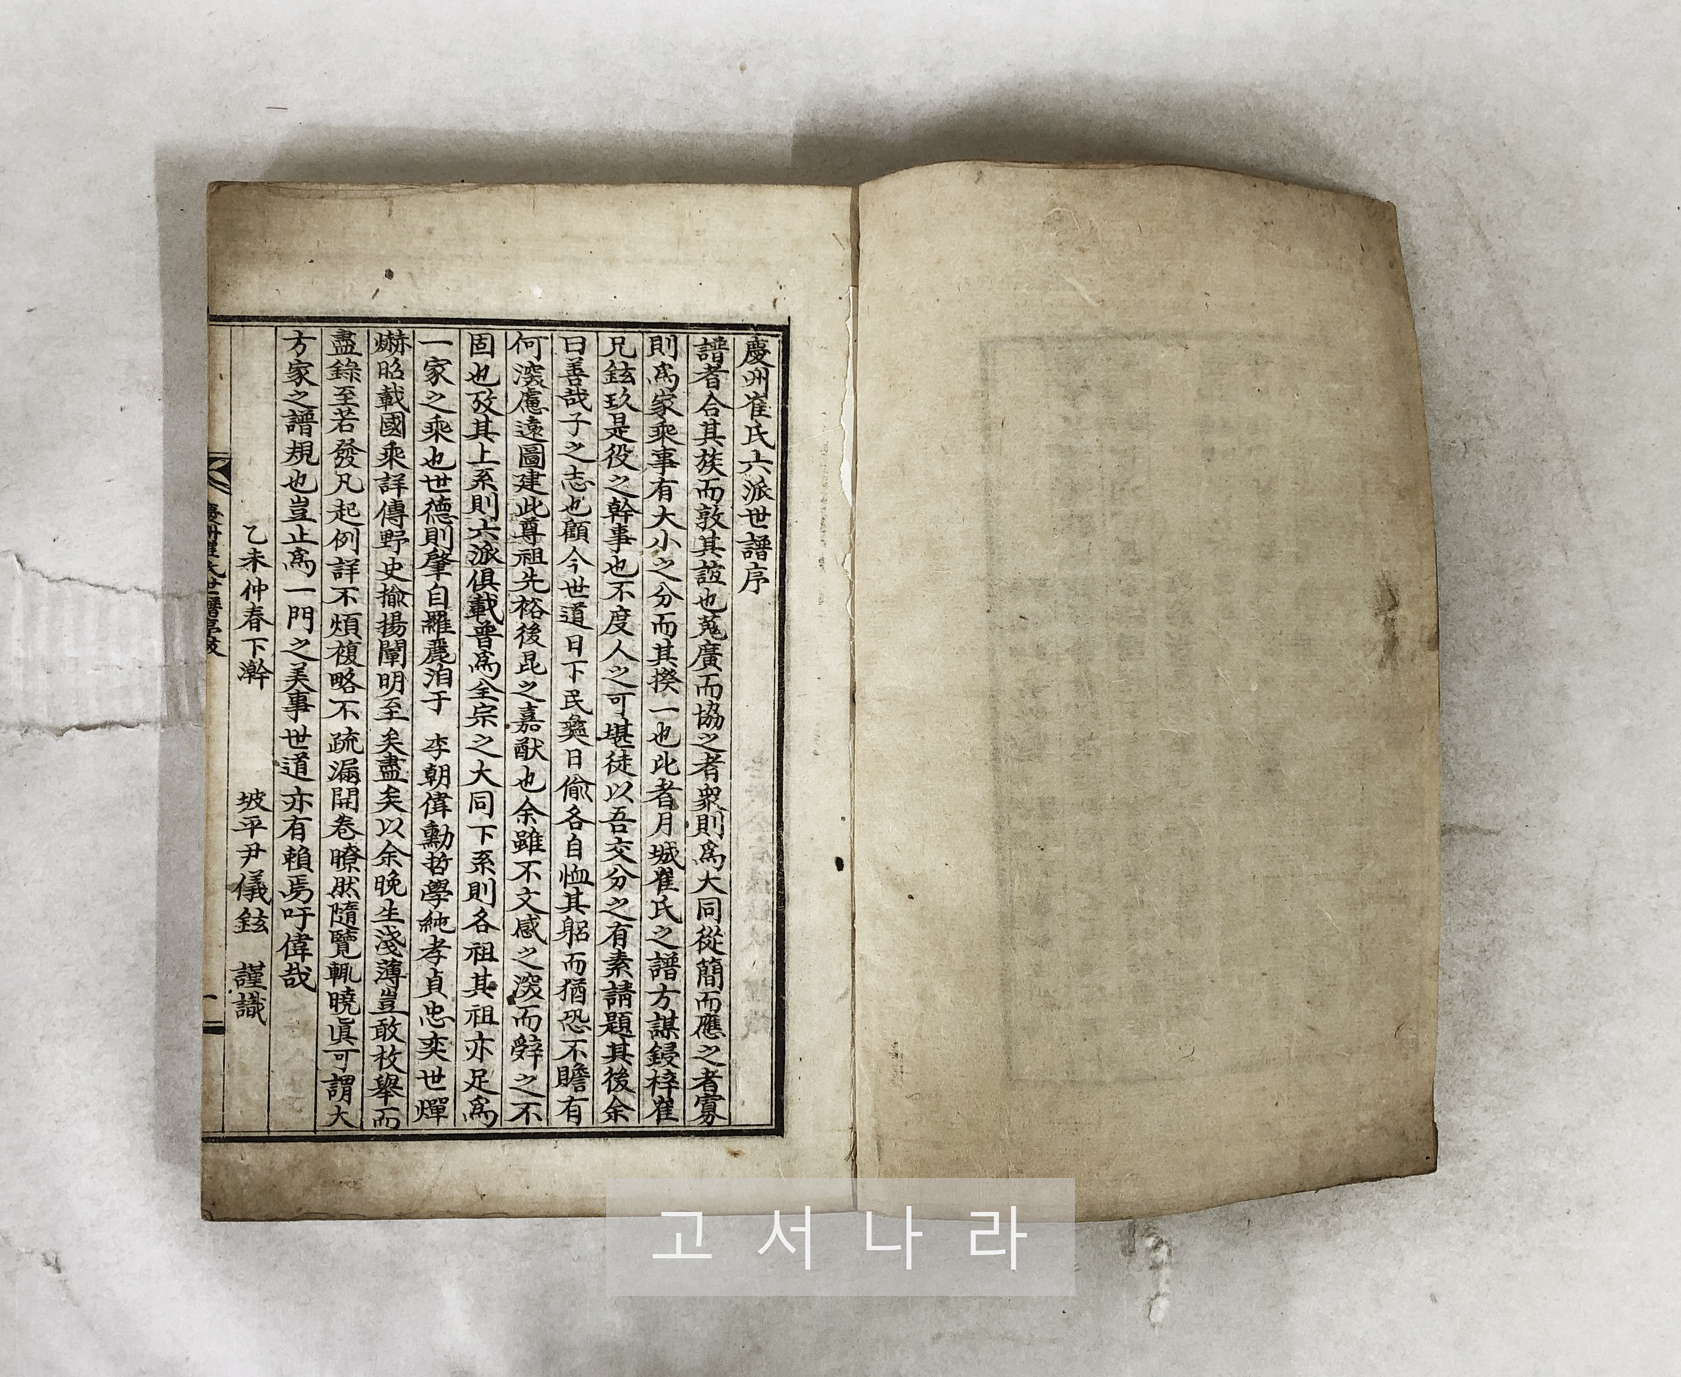 慶州崔氏六派世譜序
譜者合其族而敦其誼也蒐廣而協之者衆則爲大同從簡而應之者寡
則爲家乘事有大小之分而其揆一也比者月城崔氏之譜方謀鋟梓崔
兄鉉玖是役之幹事也不度人之可堪徒以吾交分之有素請題其後余
曰善哉子之志也顧今世道日下民彝日偸各自恤其躬而猶恐不贍有
何深慮遠圖建此尊祖先裕後昆之嘉猷也余雖不文感之深而辭之不
固也攷其上系則六派俱載普爲全宗之大同下系則各祖其祖亦足爲
一家之乘也世德則肇自羅麗洎于 李朝偉勳哲學純孝貞忠奕世燀
爀昭載國乘詳傳野史揄揚闡明至矣盡矣以余晩生淺薄豈敢枚擧而
盡錄至若發凡起例詳不煩複略不疏漏開卷瞭然隨覽輒曉眞可謂大
方家之譜規也豈止爲一門之美事世道亦有賴焉吁偉哉
乙未仲春下澣 坡平尹儀鉉 謹識
慶州崔氏世譜序跋
一
고서나라